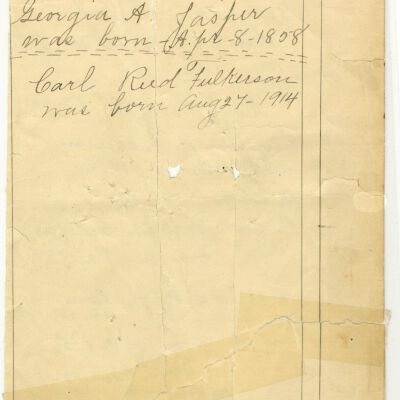 Georgia A. Jasper
was born Apr-8-1808
Carl Reed Fulkerson
was born Aug 27-1914